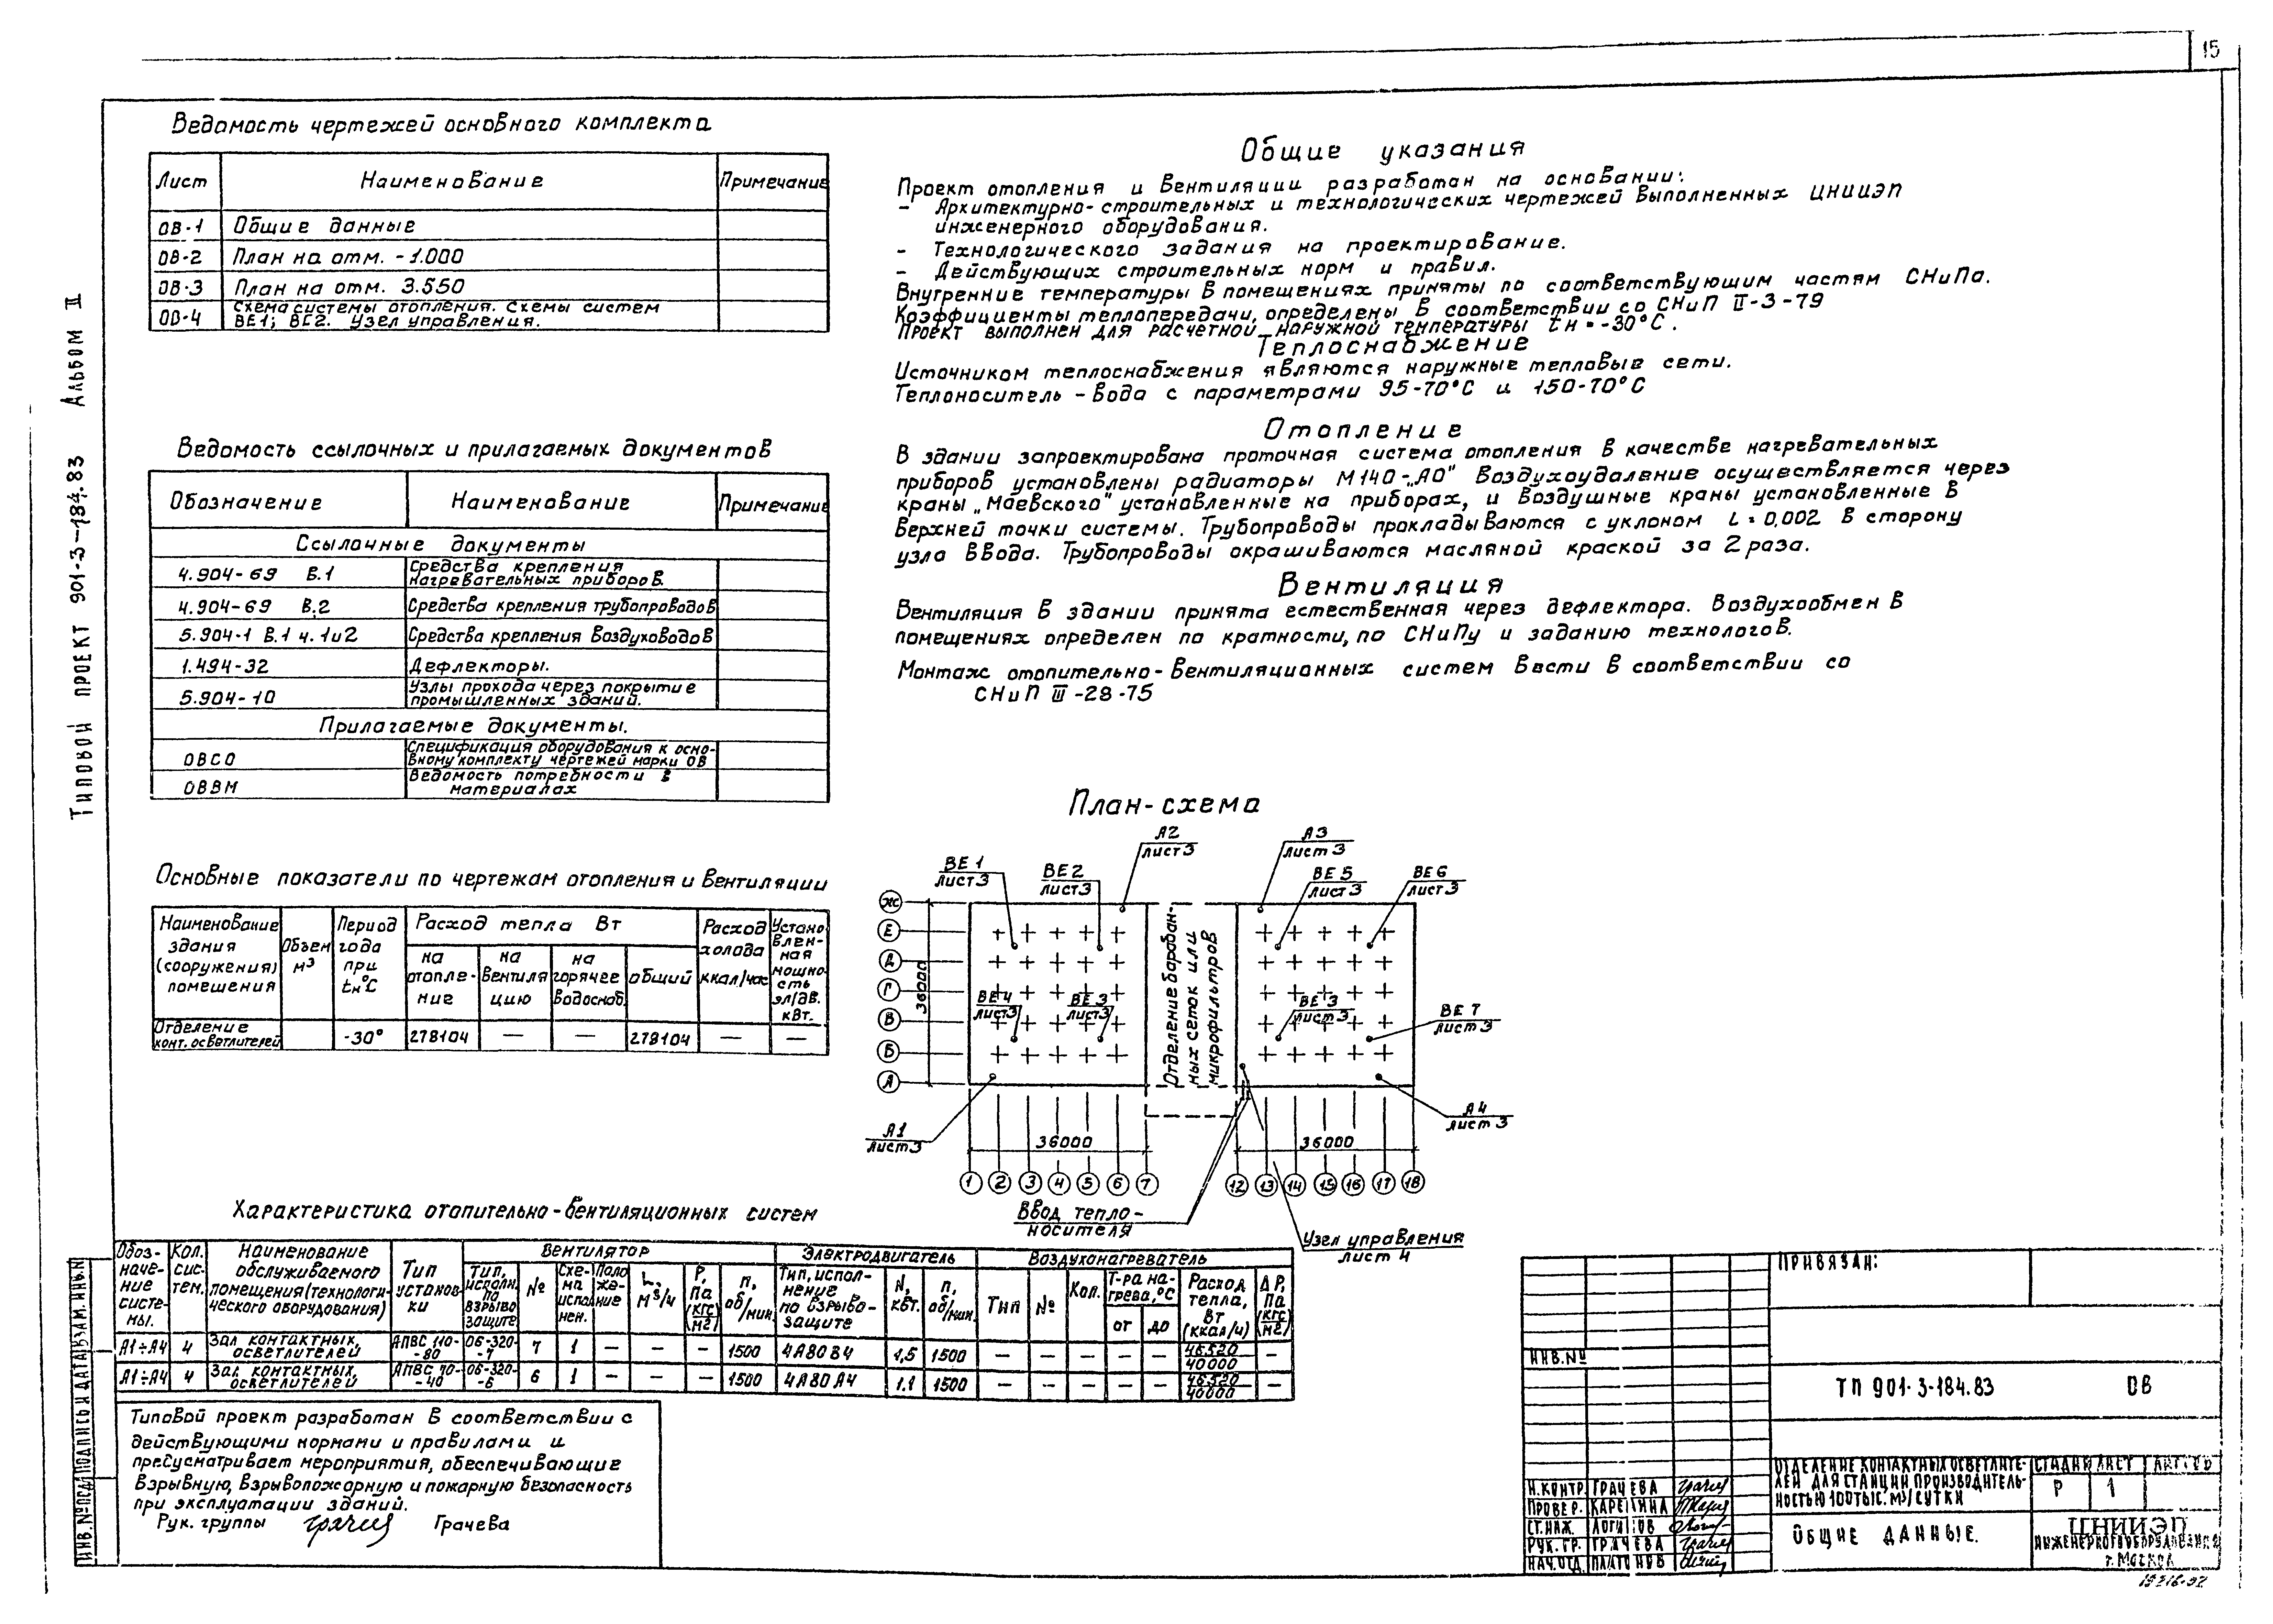 15
Типовой проект 901-3-184.83 Альбом II
Ведомость чертежей основного комплекта
Лист Наименование Примечание
ОВ-1 Общие данные
ОВ-2 План на отм. -1.000
ОВ-3 План на отм. 3.550
ОВ-4 Схема системы отопления. Схемы систем
ВЕ1; ВЕ2. Узел управления.
Ведомость ссылочных и прилагаемых документов
Обозначение Наименование Примечание
Ссылочные документы
4.904-69 В.1 Средства крепления
нагревательных приборов.
4.904-69 В.2 Средства крепления трубопроводов
5.904-1 В.1 ч.1и2 Средства крепления воздуховодов
1.494-32 Дефлекторы.
5.904-10 Узлы прохода через покрытие
промышленных зданий.
Прилагаемые документы.
ОВСО Спецификация оборудования к осно-
вному комплекту чертежей марки ОВ
ОВВМ Ведомость потребности в
материалах
Основные показатели по чертежам отопления и вентиляции
Наименование здания (сооружения) помещения
Объем м³
Период года при tн°С
Расход тепла Вт
на отопле-ние
на вентиля цию
на горячее водоснаб.
общий
Расход холода ккал/час
Устано влен- ная мощно- сть эл/дв. кВт.
Отделение
конт. осветлителей -30° 278104 — — 278104 — —
Общие указания
Проект отопления и вентиляции разработан на основании:
- Архитектурно-строительных и технологических чертежей выполненных ЦНИИЭП
инженерного оборудования.
- Технологического задания на проектирование.
- Действующих строительных норм и правил.
Внутренние температуры в помещениях приняты по соответствующим частям СНиПа.
Коэффициенты теплопередачи, определены в соответствии со СНиП II-3-79
Проект выполнен для расчетной наружной температуры tн=-30°С.
Теплоснабжение
Источником теплоснабжения являются наружные тепловые сети.
Теплоноситель - вода с параметрами 95-70°С и 150-70°С
Отопление
В здании запроектирована проточная система отопления в качестве нагревательных
приборов установлены радиаторы М140-„АО" Воздухоудаление осуществляется через
краны „Маевского" установленные на приборах, и воздушные краны установленные в
верхней точки системы. Трубопроводы прокладываются с уклоном i=0,002 в сторону
узла ввода. Трубопроводы окрашиваются масляной краской за 2 раза.
Вентиляция
Вентиляция в здании принята естественная через дефлектора. Воздухообмен в
помещениях определен по кратности, по СНиПу и заданию технологов.
Монтаж отопительно-вентиляционных систем ввсти в соответствии со
СНиП III-28-75
План-схема
А2
лист 3
А3
лист 3
ВЕ1
лист3
ВЕ2
лист3
ВЕ5
лист3
ВЕ6
лист3
Ж
Е
Д
Г
В
Б
А
36000
ВЕ4
лист3
ВЕ3
лист3
ВЕ3
лист3
ВЕ7
лист3
Отделение барабан-
ных сеток или
микрофильтров
А1
лист3
А4
лист 3
36000 36000
1 2 3 4 5 6 7 12 13 14 15 16 17 18
Ввод тепло-
носителя
Узел управления
лист 4
Характеристика отопительно-вентиляционных систем
Обоз- наче- ние систе- мы.
Кол. сис- тем.
Наименование обслуживаемого помещения (технологи- ческого оборудования)
Тип установ- ки
Вентилятор
Тип, исполн. по взрыво защите
№
Схе- ма исполнен.
Поло же- ние
L, м³/ч
Р, Па (кгс/м2)
п, об/мин.
Электродвигатель
Тип, испол- нение по взрыво- защите
N, кВт.
п, об/мин.
Воздухонагреватель
Тип
№
Кол.
Т-ра на- грева, °С
от до
Расход тепла, Вт (ккал/ч)
ΔР, Па (кгс/м2)
А1÷А4 4 Зал контактных осветлителей АПВС 110-80 06-320-7 7 1 — — — 1500 4А80В4 1,5 1500 — — — — — 46520/40000 —
А1÷А4 4 Зал контактных осветлителей АПВС 70-40 06-320-6 6 1 — — — 1500 4А80А4 1.1 1500 — — — — — 46520/40000 —
Типовой проект разработан в соответствии с
действующими нормами и правилами и
предусматривает мероприятия, обеспечивающие
взрывную, взрывопожарную и пожарную безопасность
при эксплуатации зданий.
Рук. группы Грачева
Инв.№подл Подпись и дата Взам. инв.N
Привязан:
Инв.№
ТП 901-3-184.83 ОВ
Н.контр. Грачева
Провер. Карелина
Ст.инж. Логинов
Рук.гр. Грачева
Нач.отд. Платонов
Отделение контактных осветлите-
лей для станции производитель-
ностью 100тыс. м³/сутки
Стадия Лист Листов
Р 1
Общие данные.
ЦНИИЭП
инженерного оборудования
г. Москва